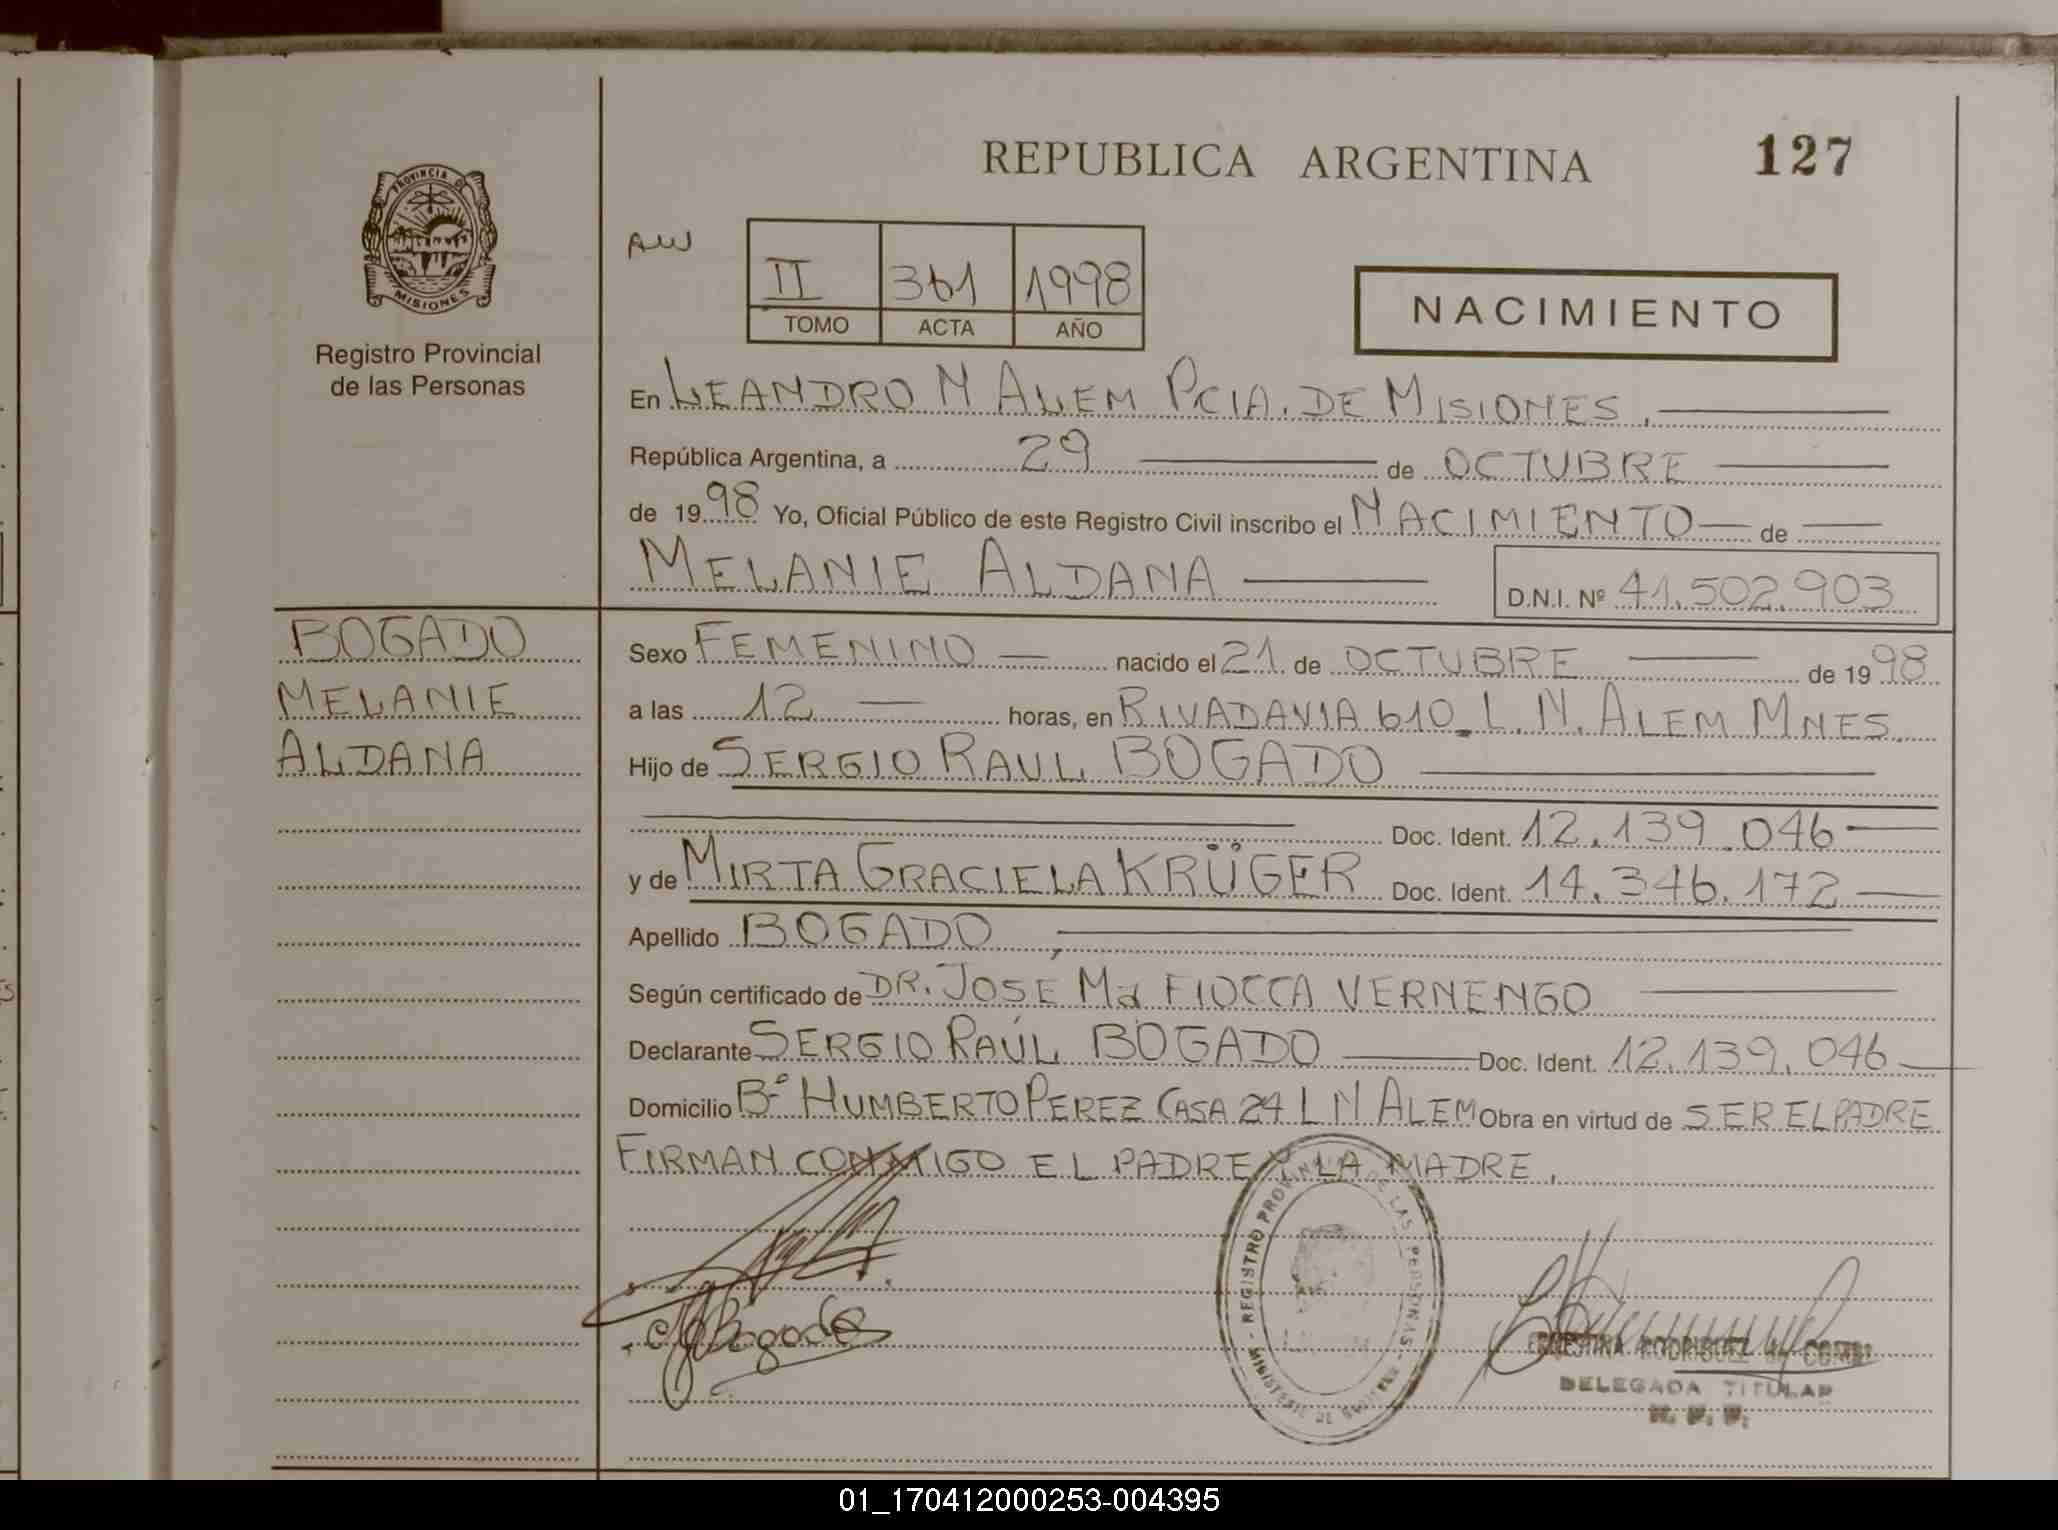 REPUBLICA ARGENTINA
127
PROVINCIA DE
MISIONES
Registro Provincial
de las Personas
AW
II 361 1998
TOMO ACTA AÑO
NACIMIENTO
En LEANDRO N ALEM PCIA. DE MISIONES.
República Argentina, a 29 de OCTUBRE
de 1998 Yo, Oficial Público de este Registro Civil inscribo el NACIMIENTO de
MELANIE ALDANA
D.N.I. Nº 41.502.903
BOGADO
MELANIE
ALDANA
Sexo FEMENINO nacido el 21 de OCTUBRE de 1998
a las 12 horas, en RIVADAVIA 610. L. N. ALEM MNES.
Hijo de SERGIO RAUL BOGADO
Doc. Ident. 12.139.046
y de MIRTA GRACIELA KRÜGER Doc. Ident. 14.346.172
Apellido BOGADO,
Según certificado de DR. JOSE Mª FIOCCA VERNENGO
Declarante SERGIO RAÚL BOGADO Doc. Ident. 12.139.046
Domicilio Bº HUMBERTO PEREZ CASA 24 L N ALEM Obra en virtud de SER EL PADRE
FIRMAN CONMIGO EL PADRE Y LA MADRE.
REGISTRO PROVINCIAL DE LAS PERSONAS
MINISTERIO DE
Bogado
ERNESTINA RODRIGUEZ
DELEGADA TITULAR
01_170412000253-004395